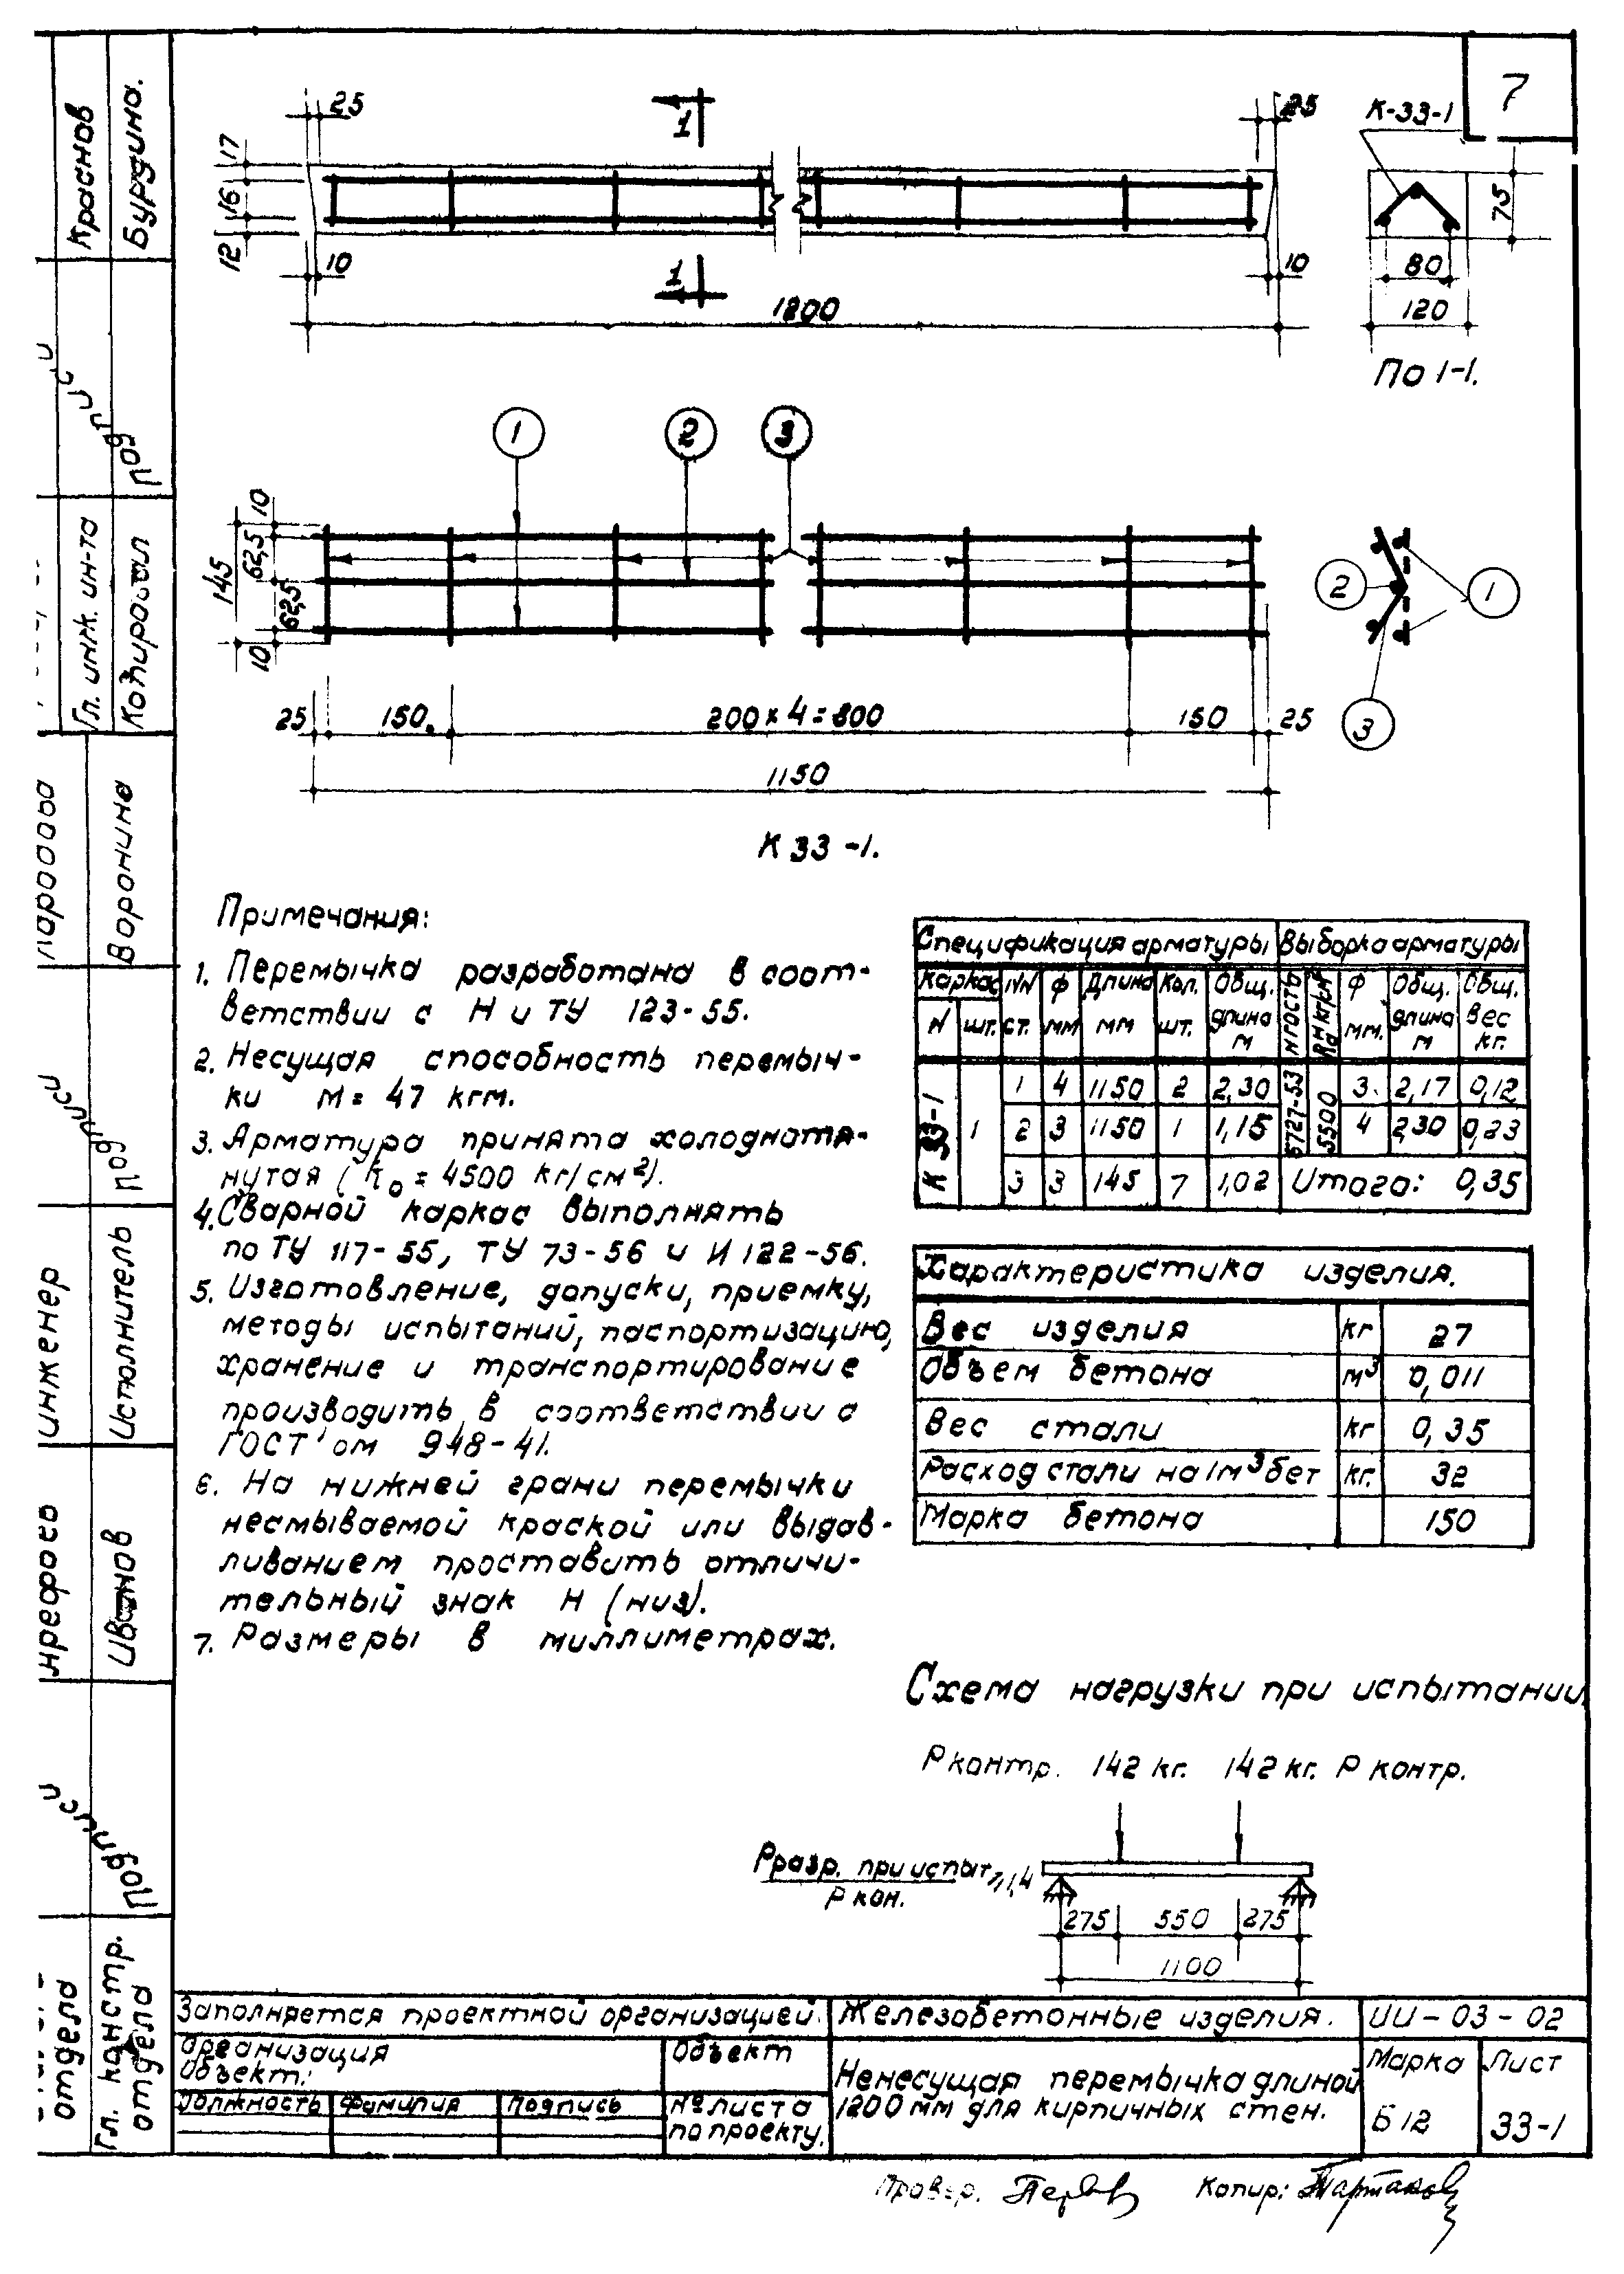 7
25
25
К-33-1
17
16
12
1
1
10
10
1200
75
80
120
По 1-1.
1
2
3
10
62,5
62,5
10
145
2
1
3
25
150
200 x 4 = 800
150
25
1150
К 33 -1.
Примечания:
1. Перемычка разработана в соот-
ветствии с Н и ТУ 123-55.
2. Несущая способность перемыч-
ки М = 47 кгм.
3. Арматура принята холоднотя-
нутая ( = 4500 кг/см²).
4. Сварной каркас выполнять
по ТУ 117-55, ТУ 73-56 и И 122-56.
5. Изготовление, допуски, приемку,
методы испытаний, паспортизацию,
хранение и транспортирование
производить в соответствии с
ГОСТ'ом 948-41.
6. На нижней грани перемычки
несмываемой краской или выдав-
ливанием проставить отличи-
тельный знак Н (низ).
7. Размеры в миллиметрах.
Спецификация арматуры Выборка арматуры
Каркас NN Ф Длина Кол. Общ. N ГОСТЬ Ф Общ. Общ.
N шт. ст. мм мм шт. длина м мм. длина м вес кг.
К 33-1 1 1 4 1150 2 2,30 6727-53 5500 3 2,17 0,12
2 3 1150 1 1,15 4 2,30 0,23
3 3 145 7 1,02 Итого: 0,35
Характеристика изделия.
Вес изделия кг 27
Объем бетона м³ 0,011
Вес стали кг 0,35
Расход стали на 1м³ бет кг. 32
Марка бетона 150
Схема нагрузки при испытании
Р контр. 142 кг. 142 кг. Р контр.
Рразр. при испыт ≥ 1,4
Р кон.
275 550 275
1100
Заполняется проектной организацией.
Организация
Объект:
Объект
Должность Фамилия Подпись
№ листа
по проекту.
Железобетонные изделия.
ИИ - 03 - 02
Ненесущая перемычка длиной
1200 мм для кирпичных стен.
Марка
Лист
Б 12
33-1
Провер.
Копир:
Краснов
Бурдина.
Подписи
Гл. инж. ин-та
Копировал
Воронина
Подписи
инженер
Исполнитель
Иванов
Подписи
отдела
Гл. констр.
отдела